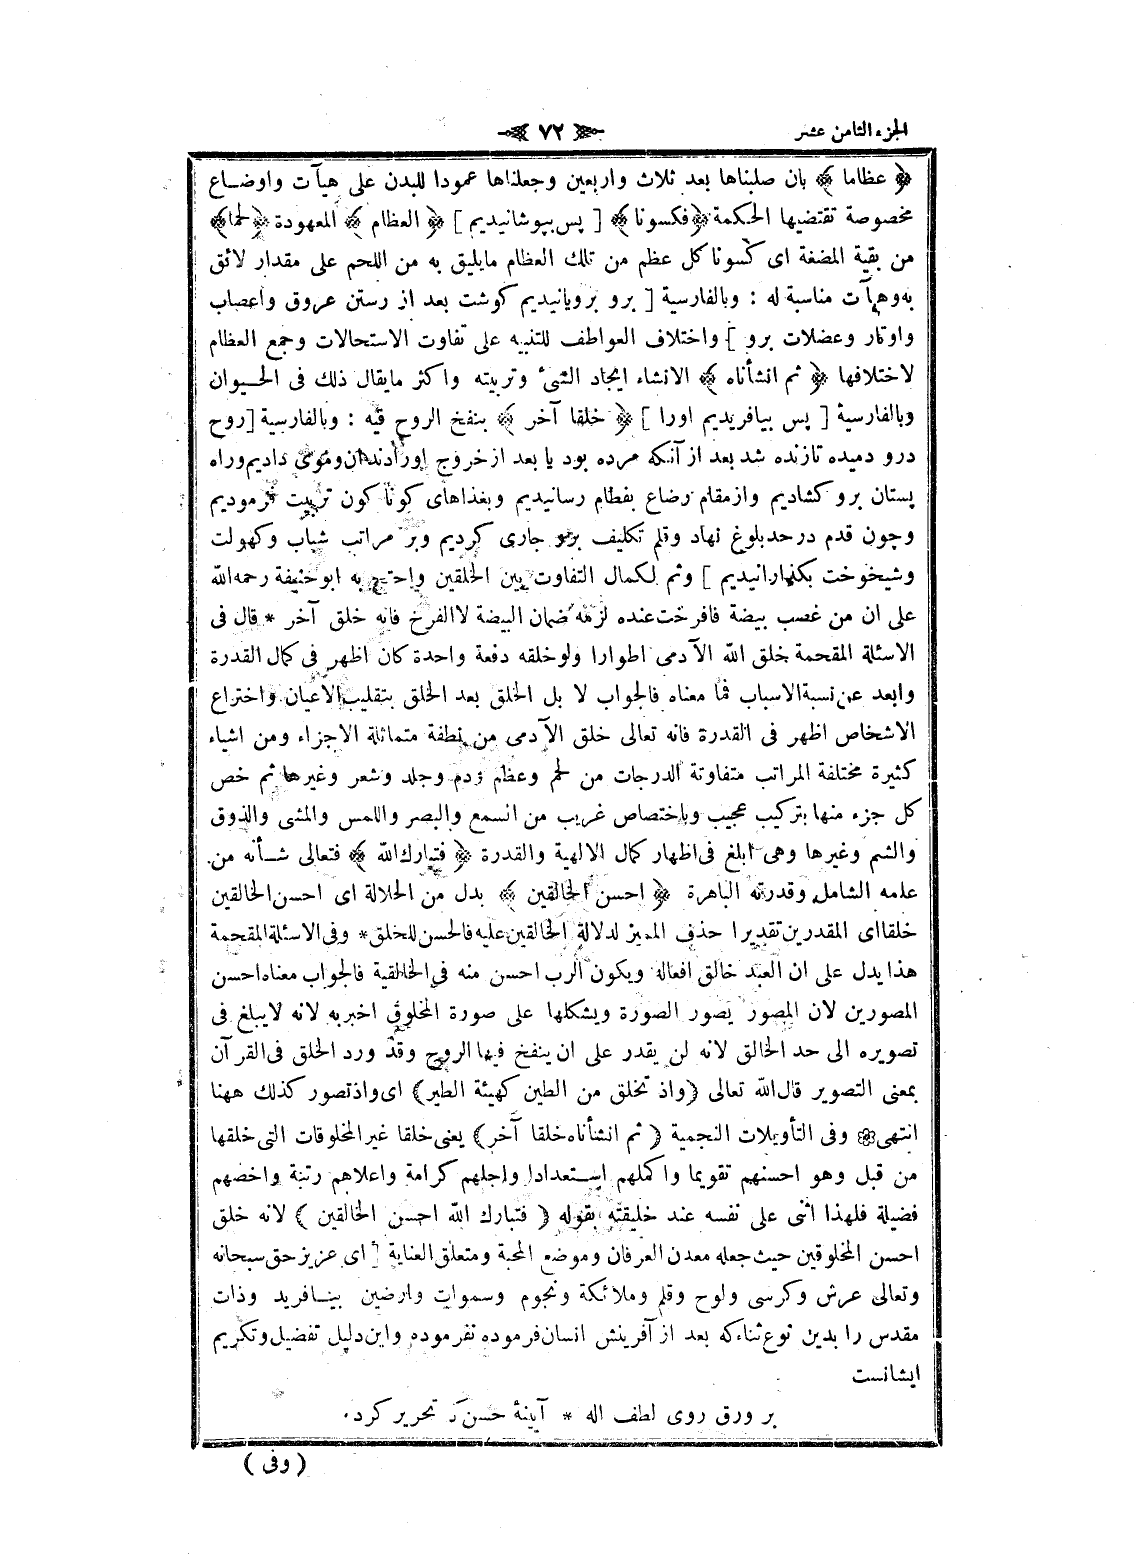 الجزء الثامن عشر
٧٢
﴿ عظاما ﴾ بان صلبناها بعد ثلاث واربعين وجعلناها عمودا للبدن على هيآت واوضاع
مخصوصة تقتضيها الحكمة ﴿ فكسونا ﴾ [ پس بپوشانيديم ] ﴿ العظام ﴾ المعهودة ﴿ لحما ﴾
من بقية المضغة اى كسونا كل عظم من تلك العظام مايليق به من اللحم على مقدار لائق
به وهيآت مناسبة له : وبالفارسية [ برو برويانيديم كوشت بعد از رستن عروق واعصاب
واوتار وعضلات برو ] واختلاف العواطف للتنبيه على تفاوت الاستحالات وجمع العظام
لاختلافها ﴿ ثم انشأناه ﴾ الانشاء ايجاد الشئ وتربيته واكثر مايقال ذلك فى الحيوان
وبالفارسية [ پس بيافريديم اورا ] ﴿ خلقا آخر ﴾ بنفخ الروح فيه : وبالفارسية [ روح
درو دميده تازنده شد بعد از آنكه مرده بود يا بعد از خروج اورا دندان وموى داديم وراه
پستان برو كشاديم واز مقام رضاع بفطام رسانيديم وبغذاهاى كونا كون تربيت فرموديم
وچون قدم در حد بلوغ نهاد وقلم تكليف برو جارى كرديم وبر مراتب شباب وكهولت
وشيخوخت بكذرانيديم ] وثم لكمال التفاوت بين الخلقين واحتج به ابو حنيفة رحمه الله
على ان من غصب بيضة فافرخت عنده لزمه ضمان البيضة لا الفرخ فانه خلق آخر * قال فى
الاسئلة المقحمة خلق الله الآدمى اطوارا ولو خلقه دفعة واحدة كان اظهر فى كمال القدرة
وابعد عن نسبة الاسباب فما معناه فالجواب لا بل الخلق بعد الخلق بتقليب الاعيان واختراع
الاشخاص اظهر فى القدرة فانه تعالى خلق الآدمى من نطفة متماثلة الاجزاء ومن اشياء
كثيرة مختلفة المراتب متفاوتة الدرجات من لحم وعظم ودم وجلد وشعر وغيرها ثم خص
كل جزء منها بتركيب عجيب وباختصاص غريب من السمع والبصر واللمس والمشى والذوق
والشم وغيرها وهى ابلغ فى اظهار كمال الالهية والقدرة ﴿ فتبارك الله ﴾ فتعالى شأنه من
علمه الشامل وقدرته الباهرة ﴿ احسن الخالقين ﴾ بدل من الجلالة اى احسن الخالقين
خلقا اى المقدرين تقديرا حذف المميز لدلالة الخالقين عليه فالحسن للخلق * وفى الاسئلة المقحمة
هذا يدل على ان العبد خالق افعاله ويكون الرب احسن منه فى الخالقية فالجواب معناه احسن
المصورين لان المصور يصور الصورة ويشكلها على صورة المخلوق اخبر به لانه لا يبلغ فى
تصويره الى حد الخالق لانه لن يقدر على ان ينفخ فيها الروح وقد ورد الخلق فى القرآن
بمعنى التصوير قال الله تعالى ( واذ تخلق من الطين كهيئة الطير ) اى واذ تصور كذلك ههنا
انتهى وفى التأويلات النجمية ( ثم انشأناه خلقا آخر ) يعنى خلقا غير المخلوقات التى خلقها
من قبل وهو احسنهم تقويما واكملهم استعدادا واجلهم كرامة واعلاهم رتبة واخصهم
فضيلة فلهذا اثنى على نفسه عند خليقته بقوله ( فتبارك الله احسن الخالقين ) لانه خلق
احسن المخلوقين حيث جعله معدن العرفان وموضع المحبة ومتعلق العناية [ اى عزيز حق سبحانه
وتعالى عرش وكرسى ولوح وقلم وملائكة ونجوم وسموات وارضين بيافريد وذات
مقدس را بدين نوع ثناء كه بعد از آفرينش انسان فرموده نفرموده واين دليل تفضيل وتكريم
ايشانست
بر ورق روى لطف اله * آينۀ حسن تحرير كرد .
( وفى )